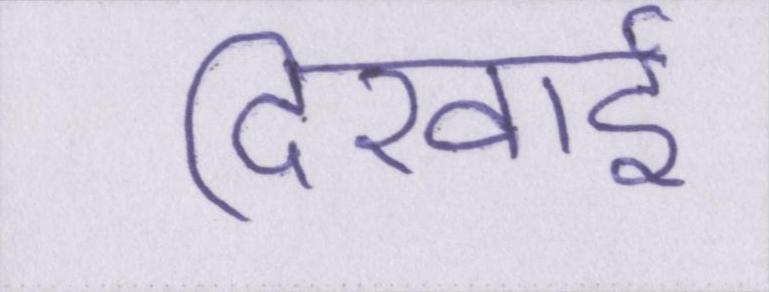 दिखाई